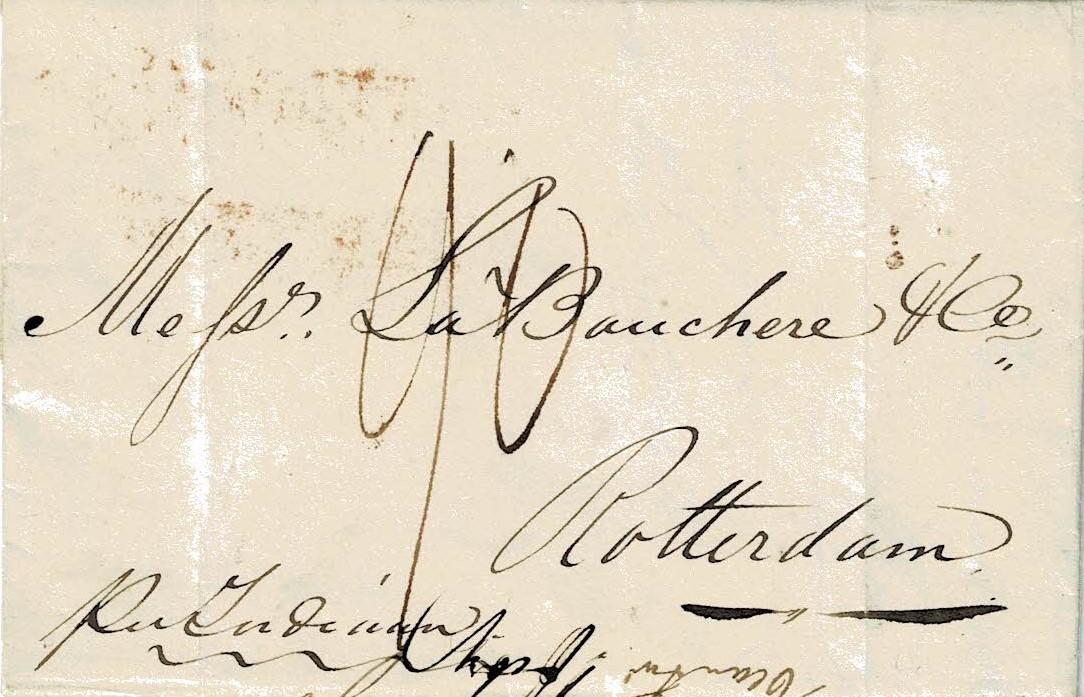 Messrs. LaBouchere & Co
Rotterdam
Per Indiaan